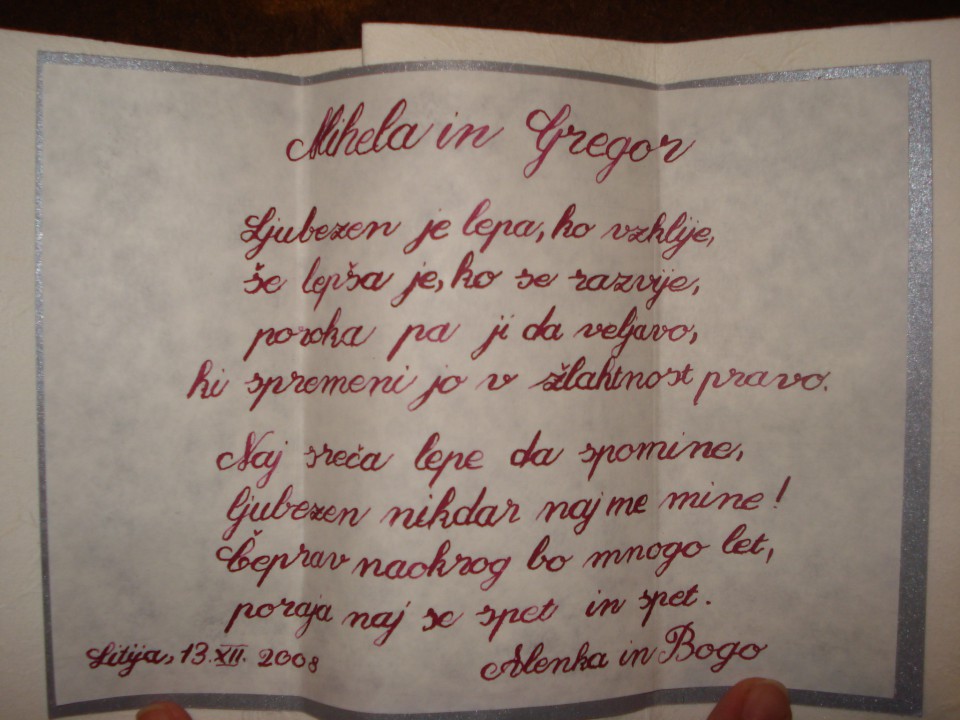 Mihela in Gregor
Ljubezen je lepa, ko vzklije,
še lepša je, ko se razvije,
poroka pa ji da veljavo,
ki spremeni jo v žlahtnost pravo.
Naj sreča lepe da spomine,
ljubezen nikdar naj me mine!
Čeprav naokrog bo mnogo let,
poraja naj se spet in spet.
Litija, 13. XII. 2008
Alenka in Bogo